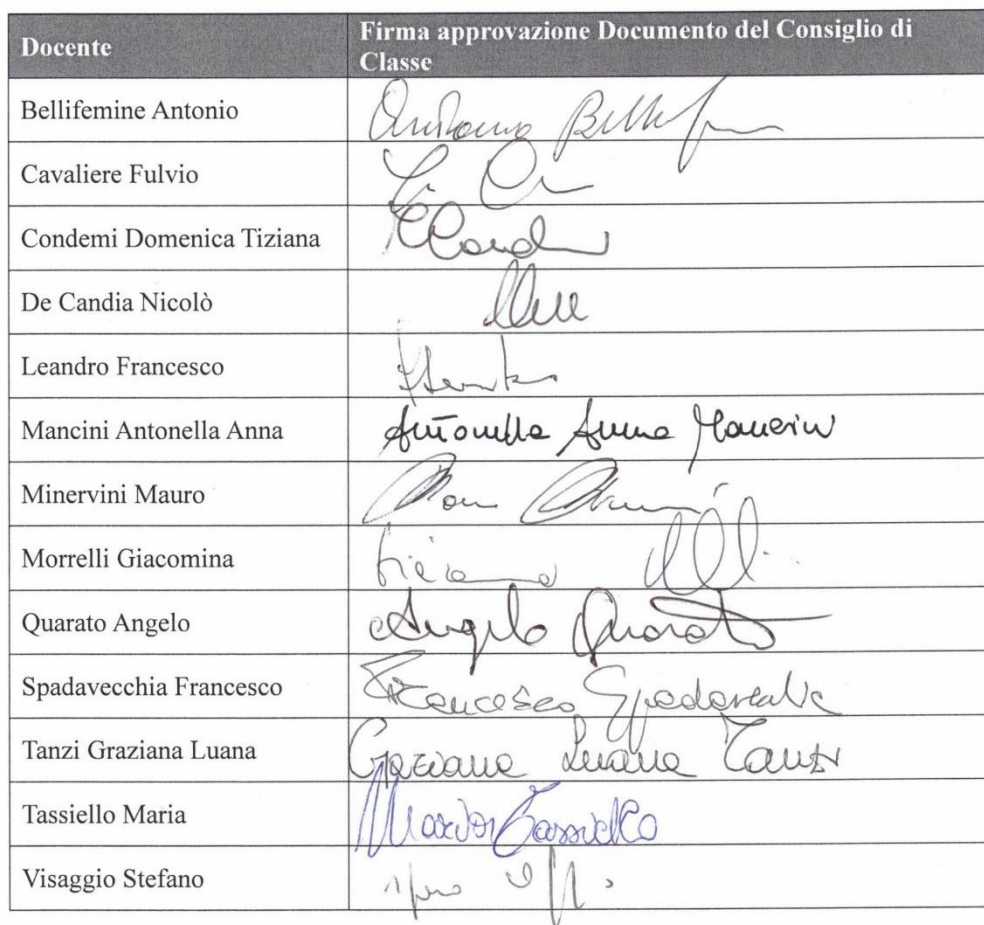 Docente
Firma approvazione Documento del Consiglio di
Classe
Bellifemine Antonio
Cavaliere Fulvio
Condemi Domenica Tiziana
De Candia Nicolò
Leandro Francesco
Mancini Antonella Anna Antonella Anna Mancini
Minervini Mauro
Morrelli Giacomina
Quarato Angelo Angelo Quarato
Spadavecchia Francesco Francesco Spadavecchia
Tanzi Graziana Luana Graziana Luana Tanzi
Tassiello Maria Maria Tassiello
Visaggio Stefano